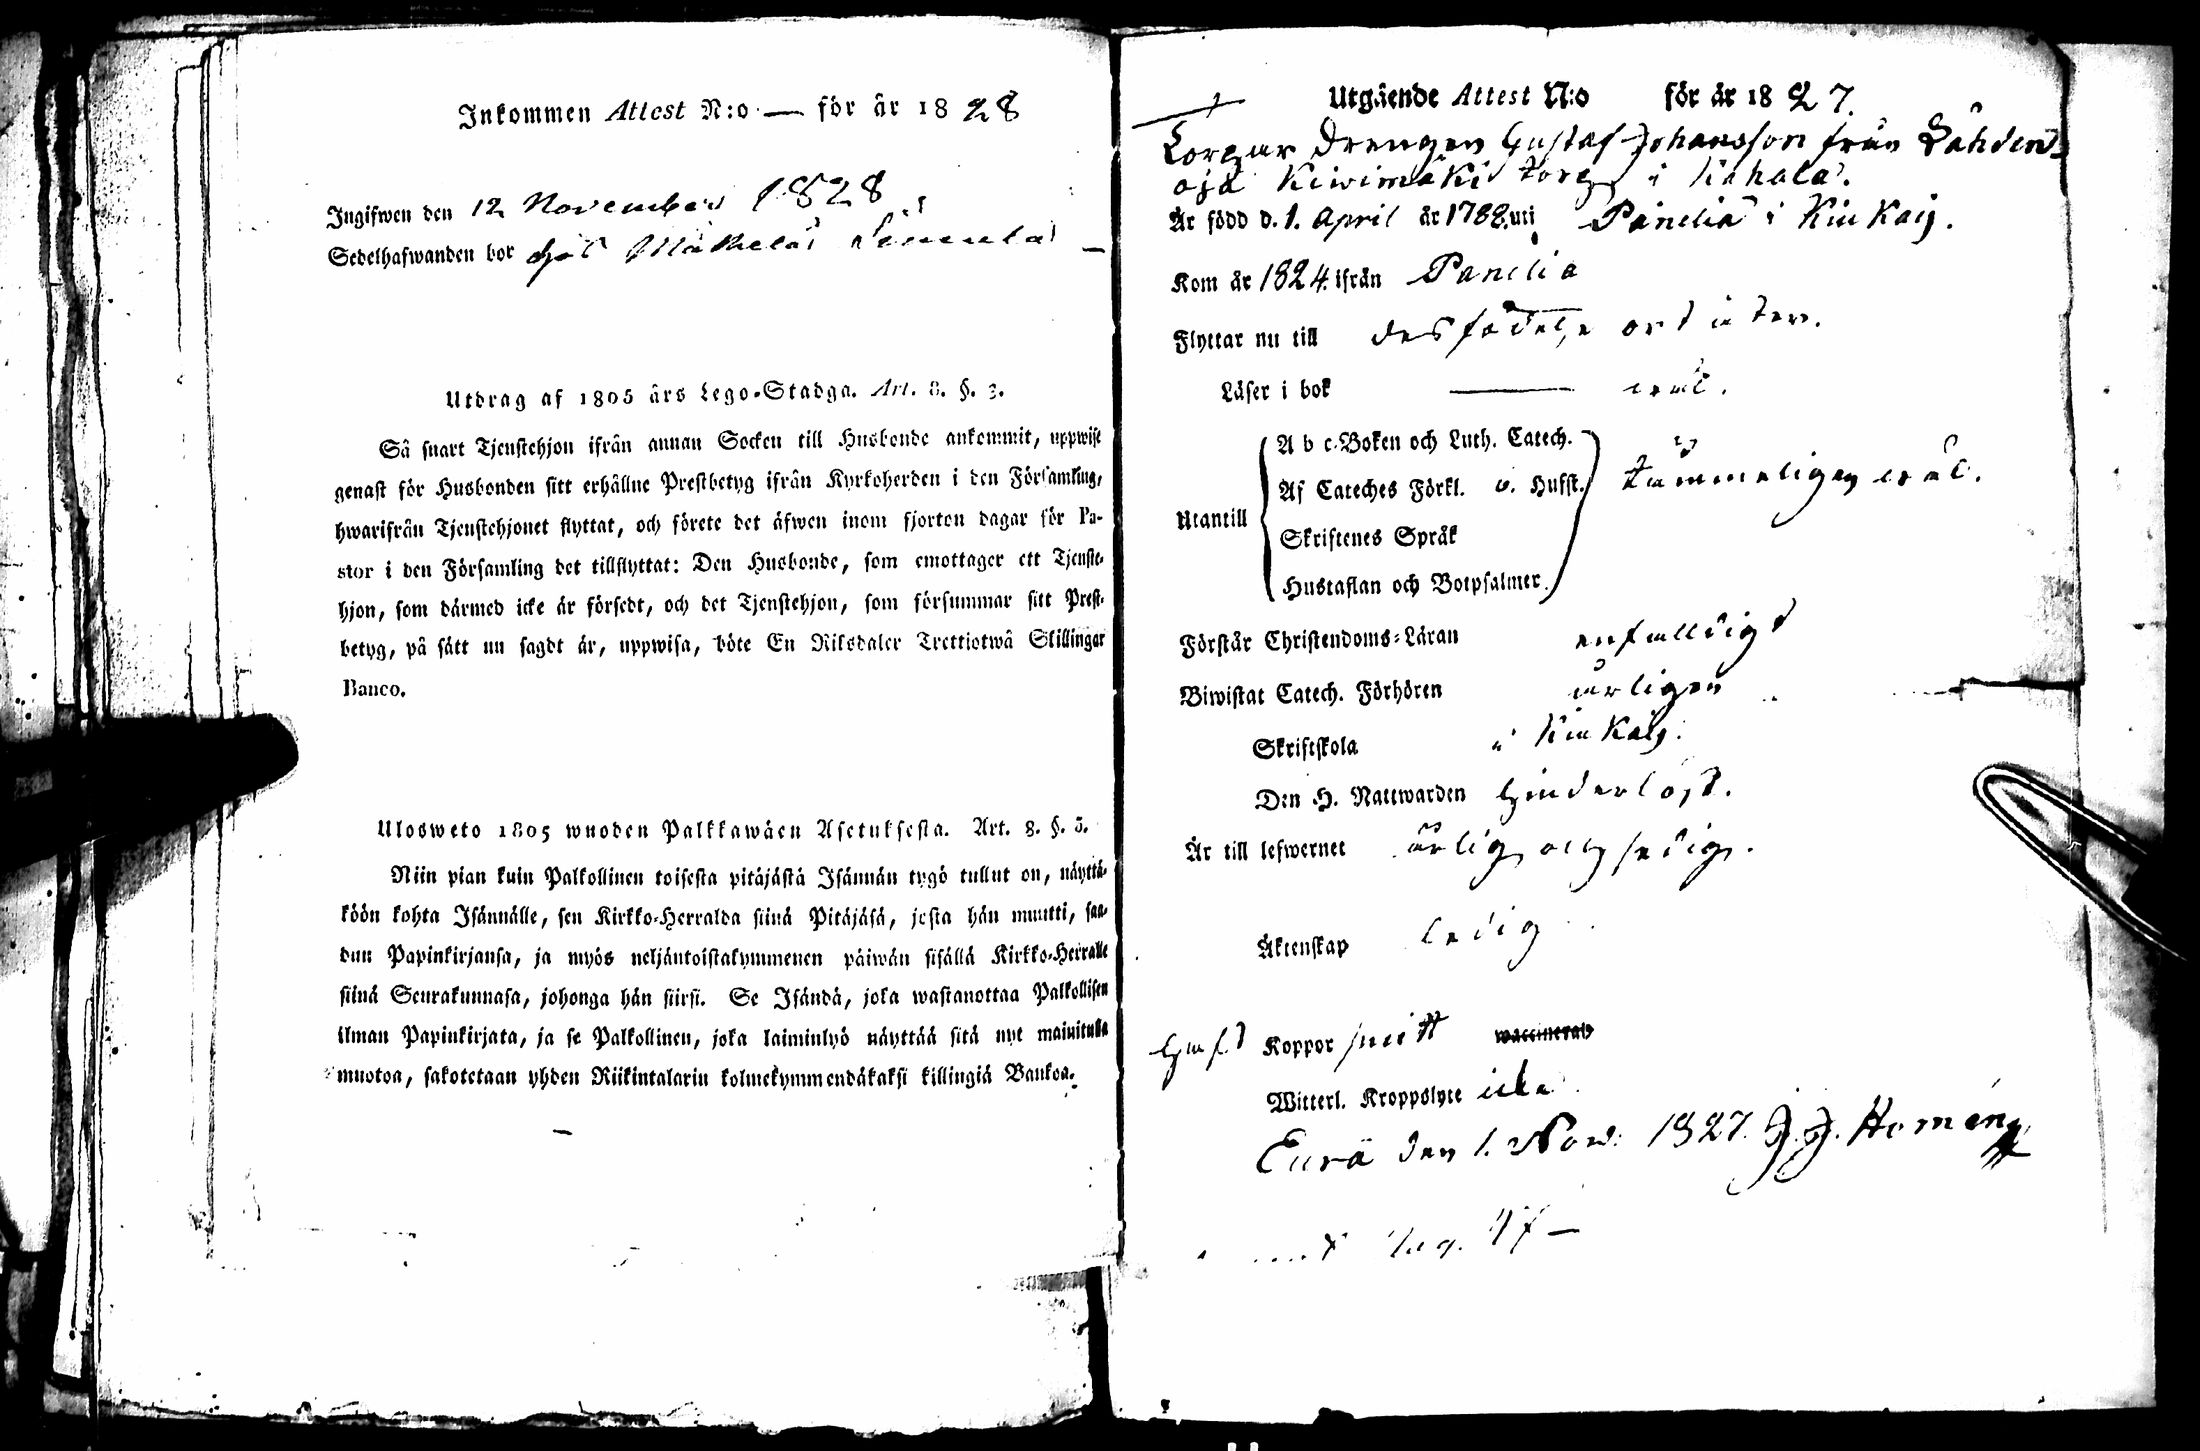 Inkommen Attest N:o — för år 1828
Ingifwen den 12 November 1828
Sedelhafwanden bor hos Mäkelä
Utdrag af 1805 års Lego-Stadga. Art. 8. §. 3.
Så snart Tjenstehjon ifrån annan Socken till Husbonde ankommit, uppwise
genast för Husbonden sitt erhållne Prestbetyg ifrån Kyrkoherden i den Församling,
hwarifrån Tjenstehjonet flyttat, och förete det äfwen inom fjorton dagar för Pa-
stor i den Församling det tillflyttat: Den Husbonde, som emottager ett Tjenste-
hjon, som därmed icke är försedt, och det Tjenstehjon, som försummar sitt Prest-
betyg, på sätt nu sagdt är, uppwisa, böte En Riksdaler Trettiotwå Skillingar
Banco.
Ulosweto 1805 wuoden Palkkawäen Asetuksesta. Art. 8. §. 3.
Niin pian kuin Palkollinen toisesta pitäjästä Isännän tygö tullut on, näyttä-
köön kohta Isännälle, sen Kirkko-Herralda siinä Pitäjäsä, josta hän muutti, saa-
dun Papinkirjansa, ja myös neljäntoistakymmenen päiwän sisällä Kirkko-Herralle
siinä Seurakunnasa, johonga hän siirsi. Se Isändä, joka wastanottaa Palkollisen
ilman Papinkirjata, ja se Palkollinen, joka laiminlyö näyttää sitä nyt mainitulla
muotoa, sakotetaan yhden Riikintalarin kolmekymmendäkaksi killingiä Bankoa.
Utgående Attest N:o för år 1827.
Torpar Drengen Gustaf Johansson från Lähden-
oja Kiwimäki torp i Kahala.
Är född d. 1. April år 1788. uti Panelia i Kiukais.
Kom år 1824. ifrån Panelia
Flyttar nu till des födelse ort åter.
Läser i bok — wäl.
Utantill
A b c-Boken och Luth. Catech.
Af Cateches Förkl. o. Husst. tämmeligen wäl.
Skriftenes Språk
Hustaflan och Botpsalmer.
Förstår Christendoms-Läran enfalldigt
Biwistat Catech. Förhören årligen
Skriftskola i Kiukais.
Den H. Nattwarden hinderlöst.
Är till lefwernet ärlig och sedig.
Äktenskap ledig
Haft Koppor smitt waccinerad
Witterl. Kroppslyte icke
Eura den 1. Now. 1827. J. J. Homén